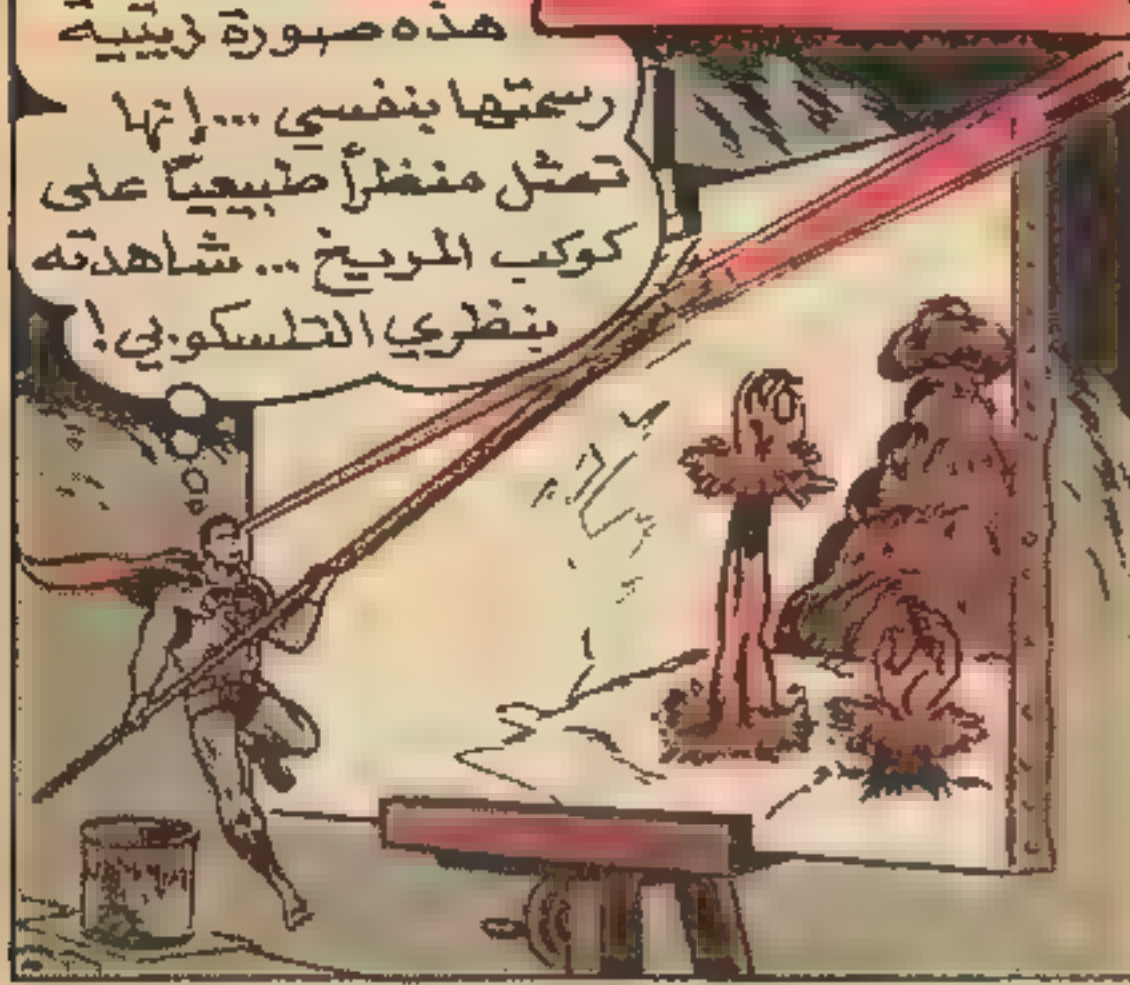 هذه صورة زيتية
رسمتها بنفسي ... إنها
تمثل منظراً طبيعياً على
كوكب المريخ ... شاهدته
بنظري التلسكوبي!